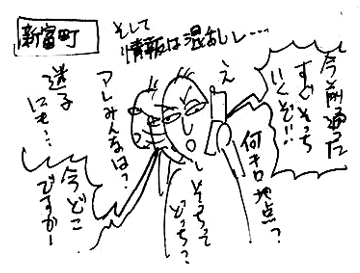 新富町
そして
情報は混乱し…
今前通った
すぐそっち
いくぞ!!
え
何キロ地点?
そっちって
どっち?
アレみんなは?
迷子
にも…
今どこ
ですかー